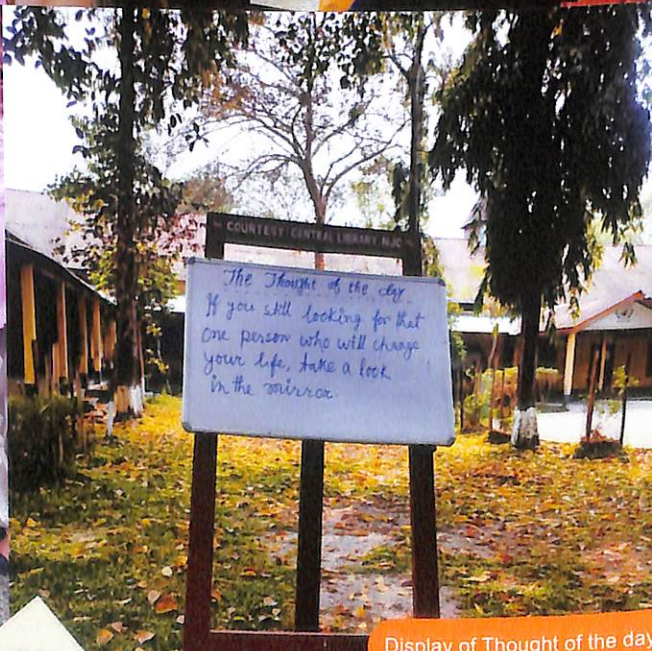 COURTESY CENTRAL LIBRARY NJC
The Thought of the day
If you still looking for that
one person who will change
your life, take a look
in the mirror.
Display of Thought of the day